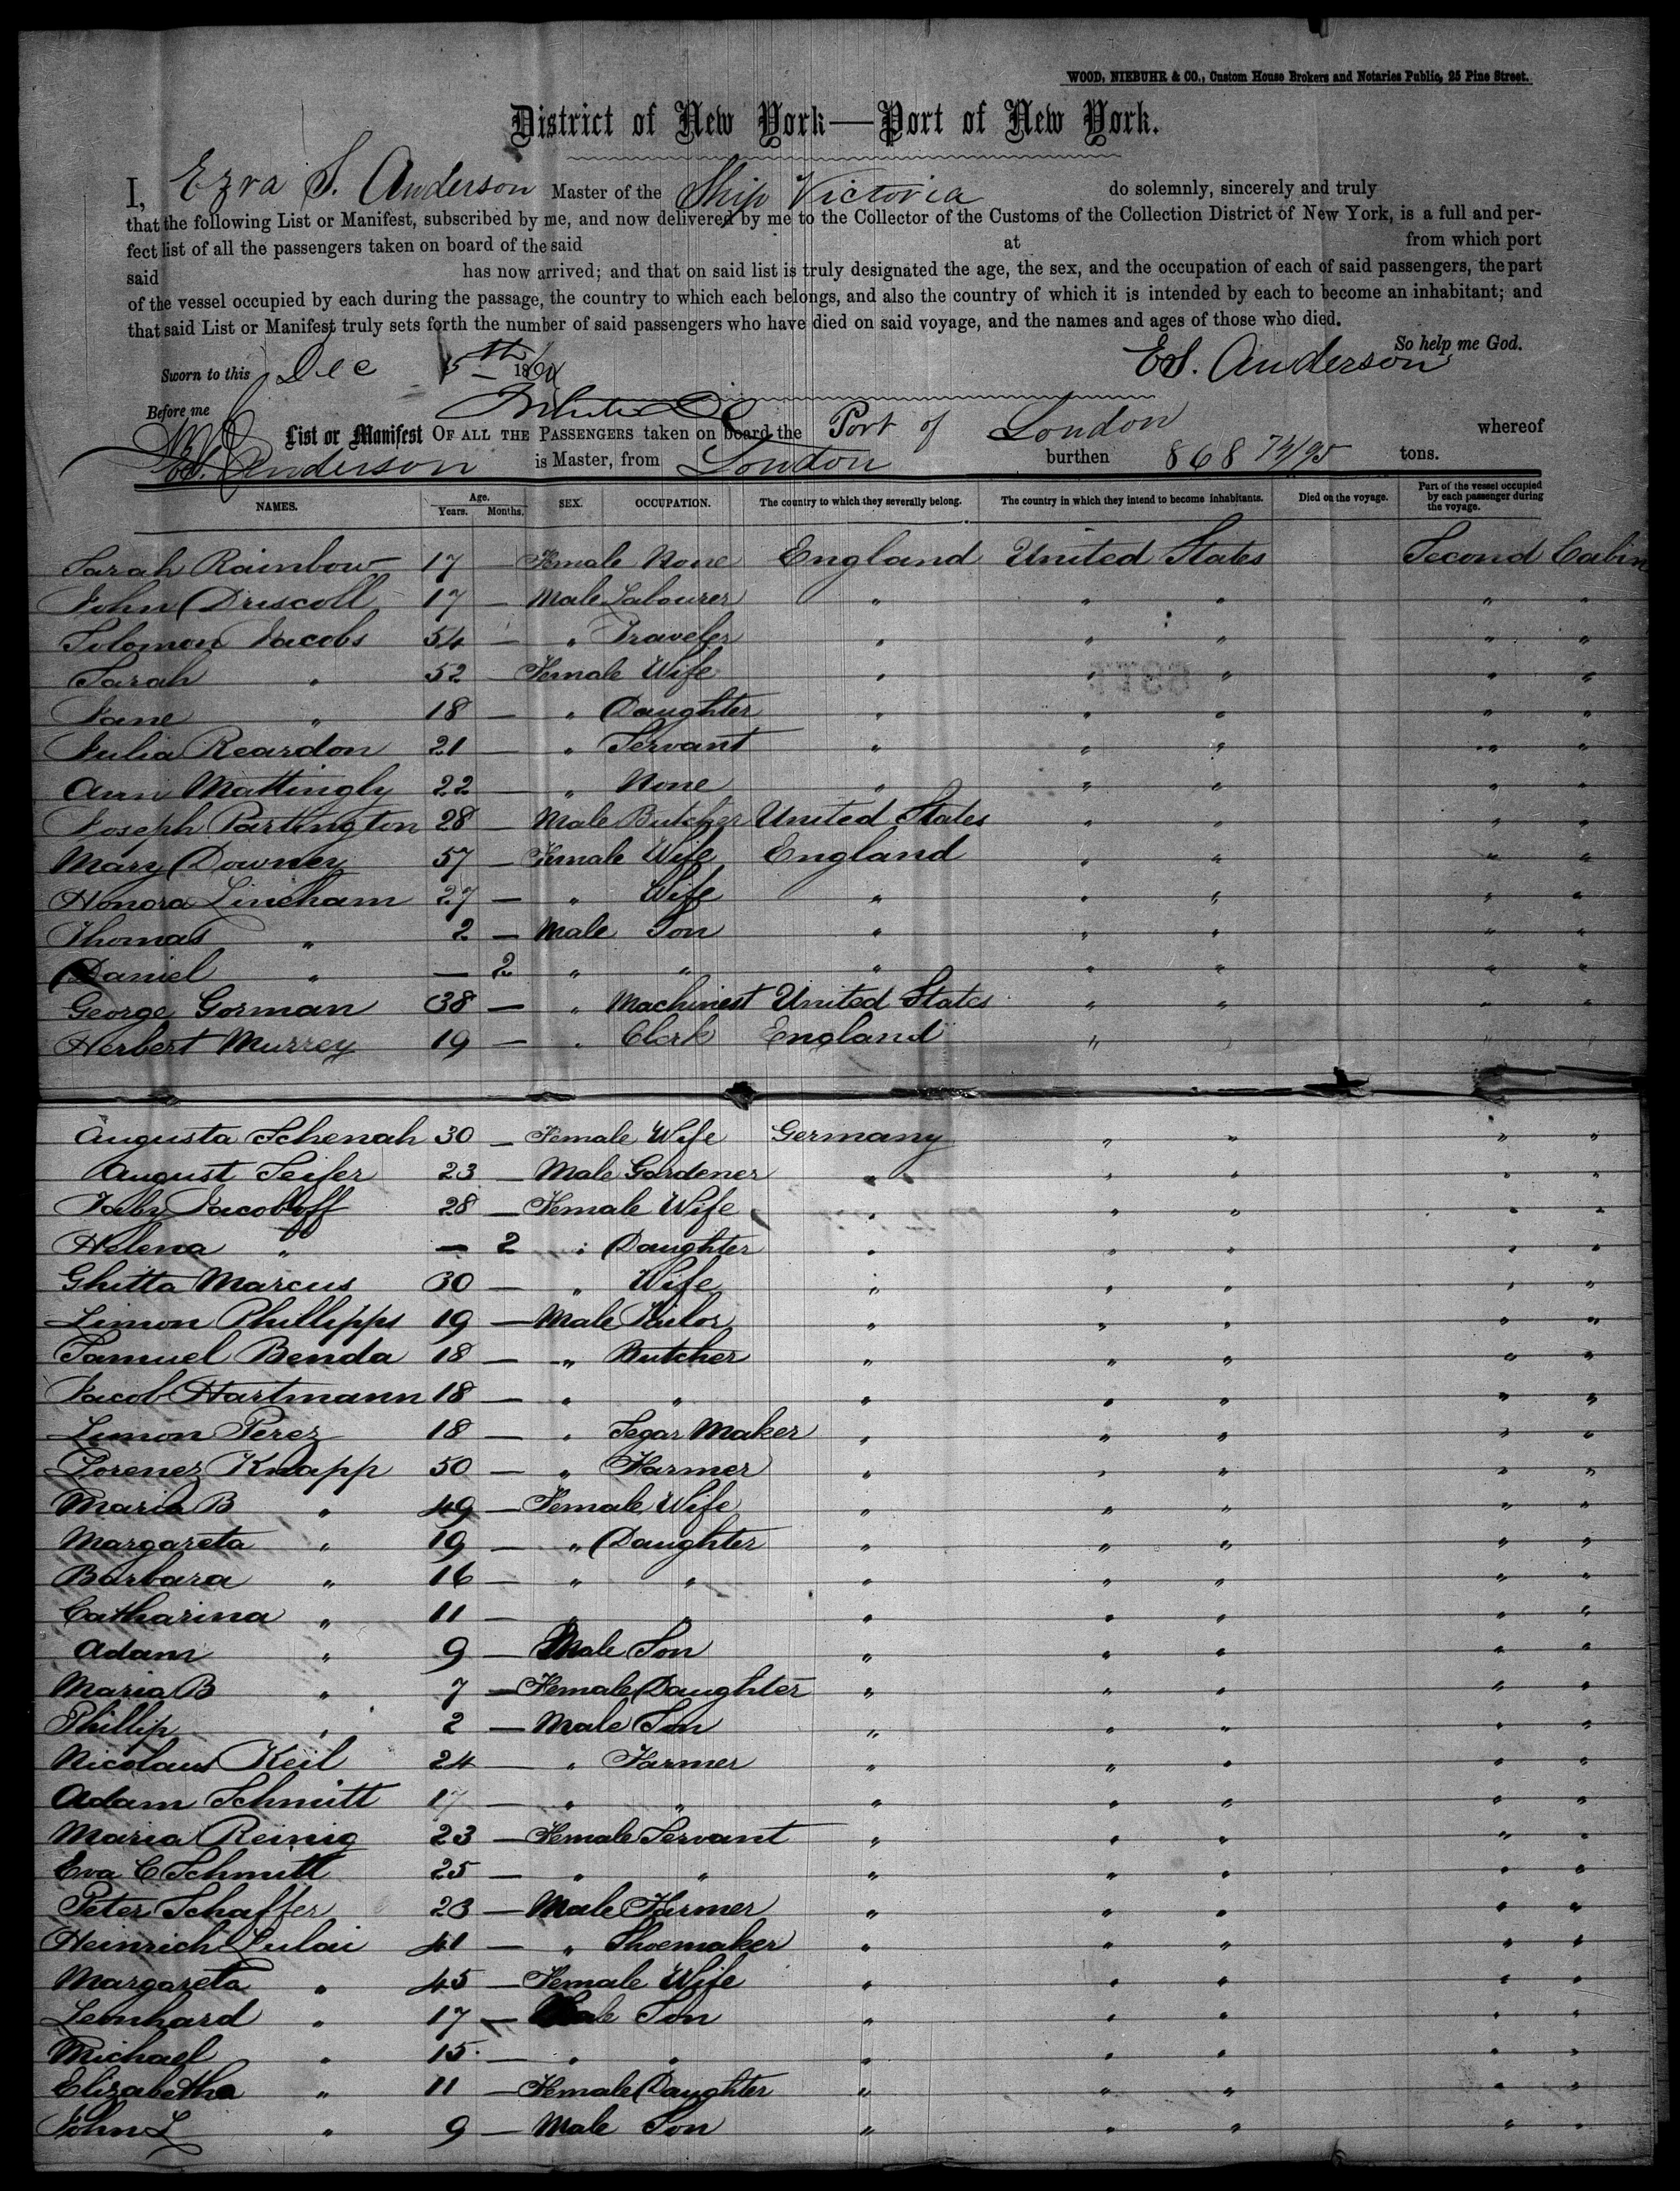 WOOD, NIEBUHR & CO., Custom House Brokers and Notaries Public, 25 Pine Street.
District of New York—Port of New York.
I, Ezra S. Anderson Master of the Ship Victoria do solemnly, sincerely and truly
that the following List or Manifest, subscribed by me, and now delivered by me to the Collector of the Customs of the Collection District of New York, is a full and per-
fect list of all the passengers taken on board of the said at from which port
said has now arrived; and that on said list is truly designated the age, the sex, and the occupation of each of said passengers, the part
of the vessel occupied by each during the passage, the country to which each belongs, and also the country of which it is intended by each to become an inhabitant; and
that said List or Manifest truly sets forth the number of said passengers who have died on said voyage, and the names and ages of those who died.
So help me God.
Sworn to this Dec 5th 186 E S. Anderson
Before me
List or Manifest OF ALL THE PASSENGERS taken on board the Port of London whereof
E S. Anderson is Master, from London burthen 868 74/95 tons.
NAMES. Age. Years. Months. SEX. OCCUPATION. The country to which they severally belong. The country in which they intend to become inhabitants. Died on the voyage. Part of the vessel occupied by each passenger during the voyage.
Sarah Rainbow 17 — Female None England United States Second Cabin
John Driscoll 17 — Male Labourer " " " " "
Solomon Jacobs 54 — " Traveler " " " " "
Sarah " 52 — Female Wife " " " " "
Jane " 18 — " Daughter " " " " "
Julia Reardon 21 — " Servant " " " " "
Ann Mattingly 22 — " None " " " " "
Joseph Partington 28 — Male Butcher United States " " " "
Mary Downey 57 — Female Wife England " " " "
Honora Lineham 27 — " Wife " " " " "
Thomas " 2 — Male Son " " " " "
Daniel " — 2 " " " " " " "
George Gorman 38 — " Machinest United States " " " "
Herbert Murrey 19 — " Clerk England " " " "
Augusta Schenah 30 — Female Wife Germany " " " "
August Seifer 23 — Male Gardener " " " " "
Jacobloff 28 — Female Wife " " " " "
Helena " — 2 " Daughter " " " " "
Ghitta Marcus 30 — " Wife " " " " "
Simon Phillipps 19 — Male Tailor " " " " "
Samuel Benda 18 — " Butcher " " " " "
Jacob Hartmann 18 — " " " " " " "
Simon Perez 18 — " Segar Maker " " " " "
Lorenez Knapp 50 — " Farmer " " " " "
Maria B " 49 — Female Wife " " " " "
Margareta " 19 — " Daughter " " " " "
Barbara " 16 — " " " " " " "
Catharina " 11 — " " " " " " "
Adam " 9 — Male Son " " " " "
Maria B " 7 — Female Daughter " " " " "
Phillip " 2 — Male Son " " " " "
Nicolaus Keil 24 — " Farmer " " " " "
Adam Schmitt 17 — " " " " " " "
Maria Reinig 23 — Female Servant " " " " "
Eva C Schmitt 25 — " " " " " " "
Peter Schaffer 23 — Male Farmer " " " " "
Heinrich Lulai 41 — " Shoemaker " " " " "
Margareta " 45 — Female Wife " " " " "
Lenhard " 17 — Male Son " " " " "
Michael " 15 — " " " " " " "
Elizabetha " 11 — Female Daughter " " " " "
John L " 9 — Male Son " " " " "